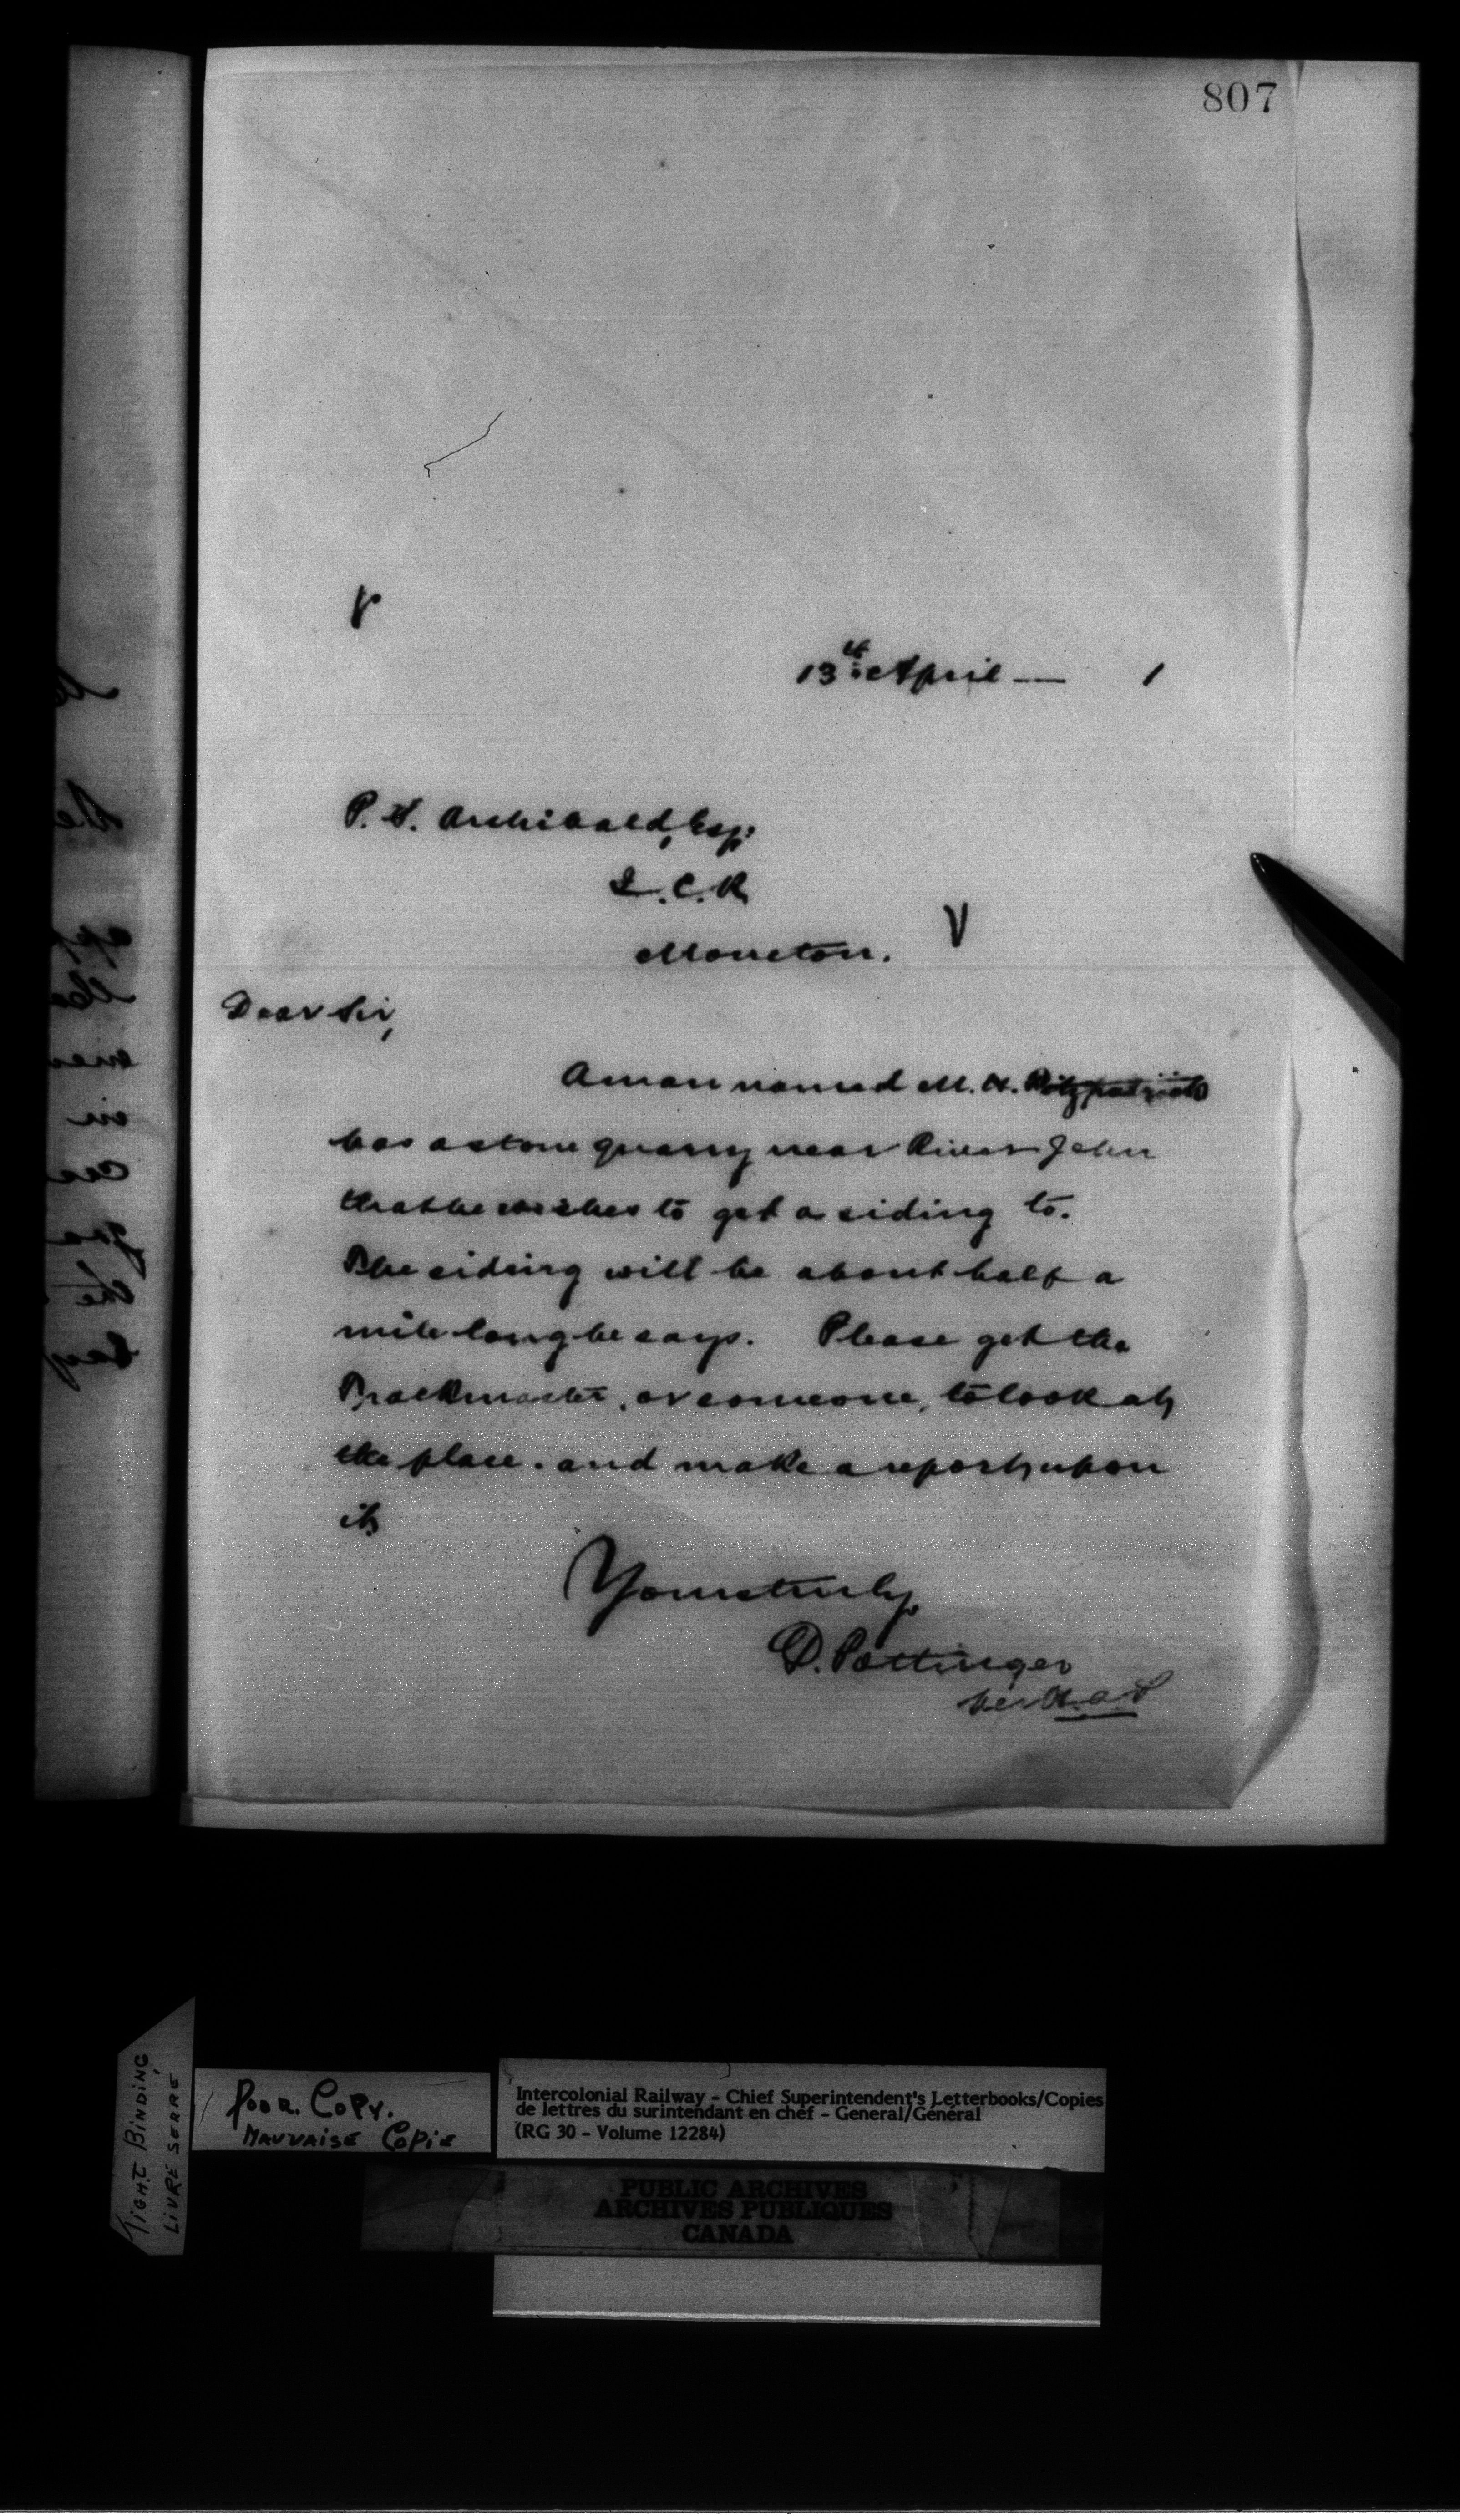 807
13th April — 1
P. S. Archibald, Esq.
I. C. R.
Moncton.
V
Dear Sir,
A man named M. H. Fitzpatrick
has a stone quarry near River John
that he wishes to get a siding to.
The siding will be about half a
mile long he says. Please get the
Trackmaster, or someone, to look at
the place. and make a report upon
it
Yours truly
D. Pottinger
Poor Copy.
Mauvaise Copie
Tight Binding,
Livre Serré
Intercolonial Railway - Chief Superintendent's Letterbooks/Copies
de lettres du surintendant en chef - General/Général
(RG 30 - Volume 12284)
PUBLIC ARCHIVES
ARCHIVES PUBLIQUES
CANADA